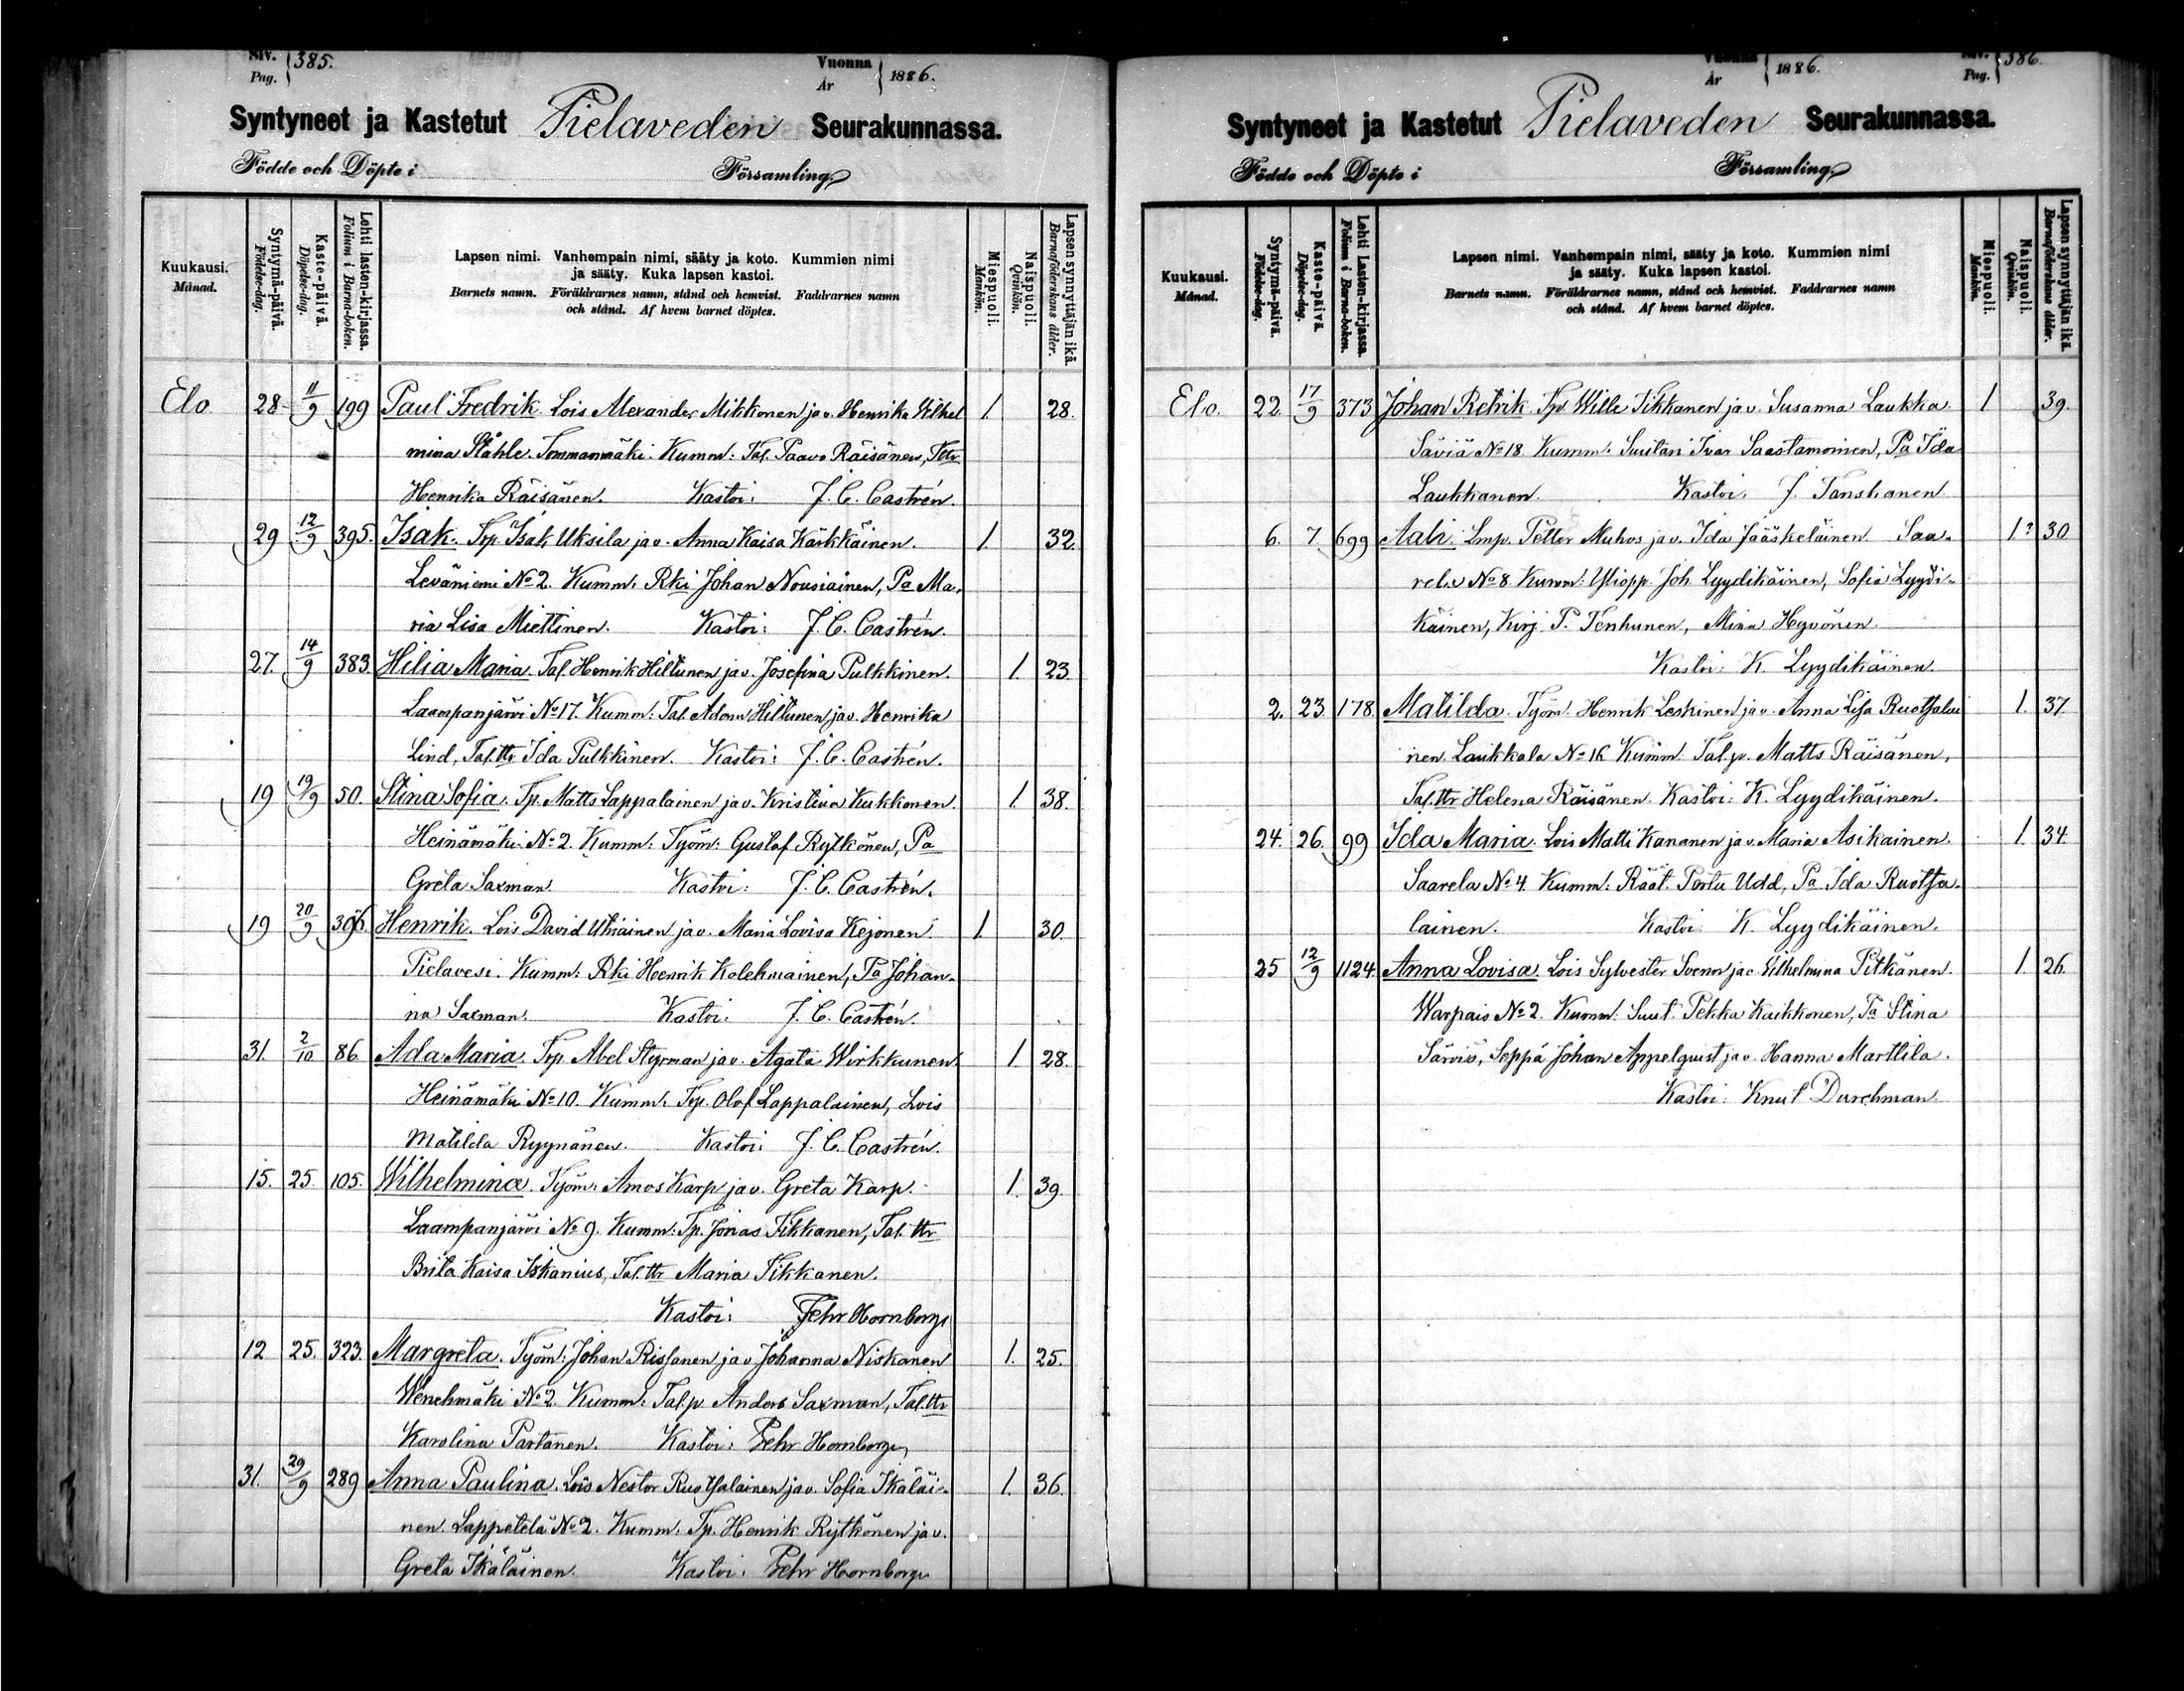 Siv. 385.
Pag.
Vuonna 1886.
År
Syntyneet ja Kastetut Pielaveden Seurakunnassa.
Födde och Döpte i Församling.
Kuukausi.
Månad.
Syntymä-päivä.
Födelse-dag.
Kaste-päivä.
Döpelse-dag.
Lehti lasten-kirjassa.
Folium i Barna-boken.
Lapsen nimi. Vanhempain nimi, sääty ja koto. Kummien nimi
ja sääty. Kuka lapsen kastoi.
Barnets namn. Föräldrarnes namn, stånd och hemvist. Faddrarnes namn
och stånd. Af hvem barnet döptes.
Miespuoli.
Mankön.
Naispuoli.
Qvinkön.
Lapsen synnyttäjän ikä.
Barnaföderskans ålder.
Elo. 28 11/9 199 Paul Fredrik. Lois Alexander Mikkonen ja v. Henrika Wilhel 1. 28.
mina Ståhle. Tommanmäki. Kumm: Tal. Paavo Räisänen, Tttr
Henrika Räisänen. Kastoi: J. C. Castrén.
29 12/9 395. Isak. Trp. Isak Uksila ja v. Anna Kaisa Kärkkäinen. 1. 32.
Leväniemi No 2. Kumm: Rki Johan Nousiainen, Pa Ma-
ria Lisa Miettinen. Kastoi: J. C. Castrén.
27. 14/9 383. Hilia Maria. Tal. Henrik Hiltunen ja v. Josefina Pulkkinen. 1. 23.
Laampanjärvi No 17. Kumm: Tal. Adam Hiltunen ja v. Henrika
Lind, Tal. ttr Ida Pulkkinen. Kastoi: J. C. Castrén.
19 19/9 50. Stina Sofia. Tp. Matts Lappalainen ja v. Kristina Kukkonen. 1. 38.
Heinämäki No 2. Kumm: Työm: Gustaf Rytkönen, Pa
Greta Saxman. Kastoi: J. C. Castrén.
19 20/9 Henrik. Lois David Utriainen ja v. Maria Lovisa Kejonen. 1. 30.
Pielavesi. Kumm: Rki Henrik Kolehmainen, Pa Johan-
na Saxman. Kastoi: J. C. Castrén.
31. 2/10 86. Ada Maria. Trp. Abel Styrman ja v. Agata Wirkkunen. 1. 28.
Heinämäki No 10. Kumm: Trp. Olof Lappalainen, Lois
Matilda Ryynänen. Kastoi: J. C. Castrén.
15. 25. 105. Wilhelmina. Työm: Amos Karp ja v. Greta Karp. 1. 39.
Laampanjärvi No 9. Kumm: Tp. Jonas Tikkanen, Tal. ttr
Brita Kaisa Iskanius, Tal. ttr Maria Tikkanen.
Kastoi: Fehr Hornborg
12 25. 323. Margreta. Työm: Johan Rissanen ja v. Johanna Niskanen 1. 25.
Wenehmäki No 2. Kumm: Tal. p. Anders Saxman, Tal. ttr
Karolina Partanen. Kastoi: Fehr Hornborg
31. 29/9 289 Anna Paulina. Lois Nestor Ruotsalainen ja v. Sofia Ikäläi- 1. 36.
nen. Lappetelä No 2. Kumm: Tp. Henrik Rytkönen ja v.
Greta Ikäläinen. Kastoi: Fehr Hornborg
Vuonna 1886.
År
Siv. 386.
Pag.
Syntyneet ja Kastetut Pielaveden Seurakunnassa.
Födde och Döpte i Församling.
Kuukausi.
Månad.
Syntymä-päivä.
Födelse-dag.
Kaste-päivä.
Döpelse-dag.
Lehti Lasten-kirjassa.
Folium i Barna-boken.
Lapsen nimi. Vanhempain nimi, sääty ja koto. Kummien nimi
ja sääty. Kuka lapsen kastoi.
Barnets namn. Föräldrarnes namn, stånd och hemvist. Faddrarnes namn
och stånd. Af hvem barnet döptes.
Miespuoli.
Mankön.
Naispuoli.
Qvinkön.
Lapsen synnyttäjän ikä.
Barnaföderskans ålder.
Elo. 22. 17/9 373 Johan Retrik. Tp. Wille Tikkanen ja v. Susanna Laukka 1 39.
Säviä No 18. Kumm: Suutari Ivar Saastamoinen, Pa Ida
Laukkanen. Kastoi: J. Tanskanen
6. 7. 699 Lmp. Petter Muhos ja v. Ida Jääskeläinen. Saa- 1? 30
rela No 8 Kumm: Yliopp. Joh. Lyydikäinen, Sofia Lyydi-
käinen, Kirj. P. Tenhunen, Mina Hyvönen.
Kastoi: K. Lyydikäinen.
2. 23. 178. Matilda. Työm: Henrik Leskinen ja v. Anna Lisa Ruotsalai 1. 37.
nen. Laukkala No 16 Kumm. Tal. p. Matts Räisänen,
Tal. ttr Helena Räisänen. Kastoi: K. Lyydikäinen.
24. 26. 99 Ida Maria. Lois Matti Kananen ja v. Maria Asikainen. 1. 34.
Saarela No 4. Kumm: Räät. Pertu Udd, Pa Ida Ruotsa-
lainen. Kastoi K. Lyydikäinen.
25 12/9 1124. Anna Lovisa. Lois Sylvester Svenn ja v. Wilhelmina Pitkänen. 1. 26.
Warpais No 2. Kumm: Suut. Pekka Kaikkonen, Pa Stina
Särviö, Seppä Johan Appelqvist ja v. Hanna Marttila.
Kastoi: Knut Durchman.